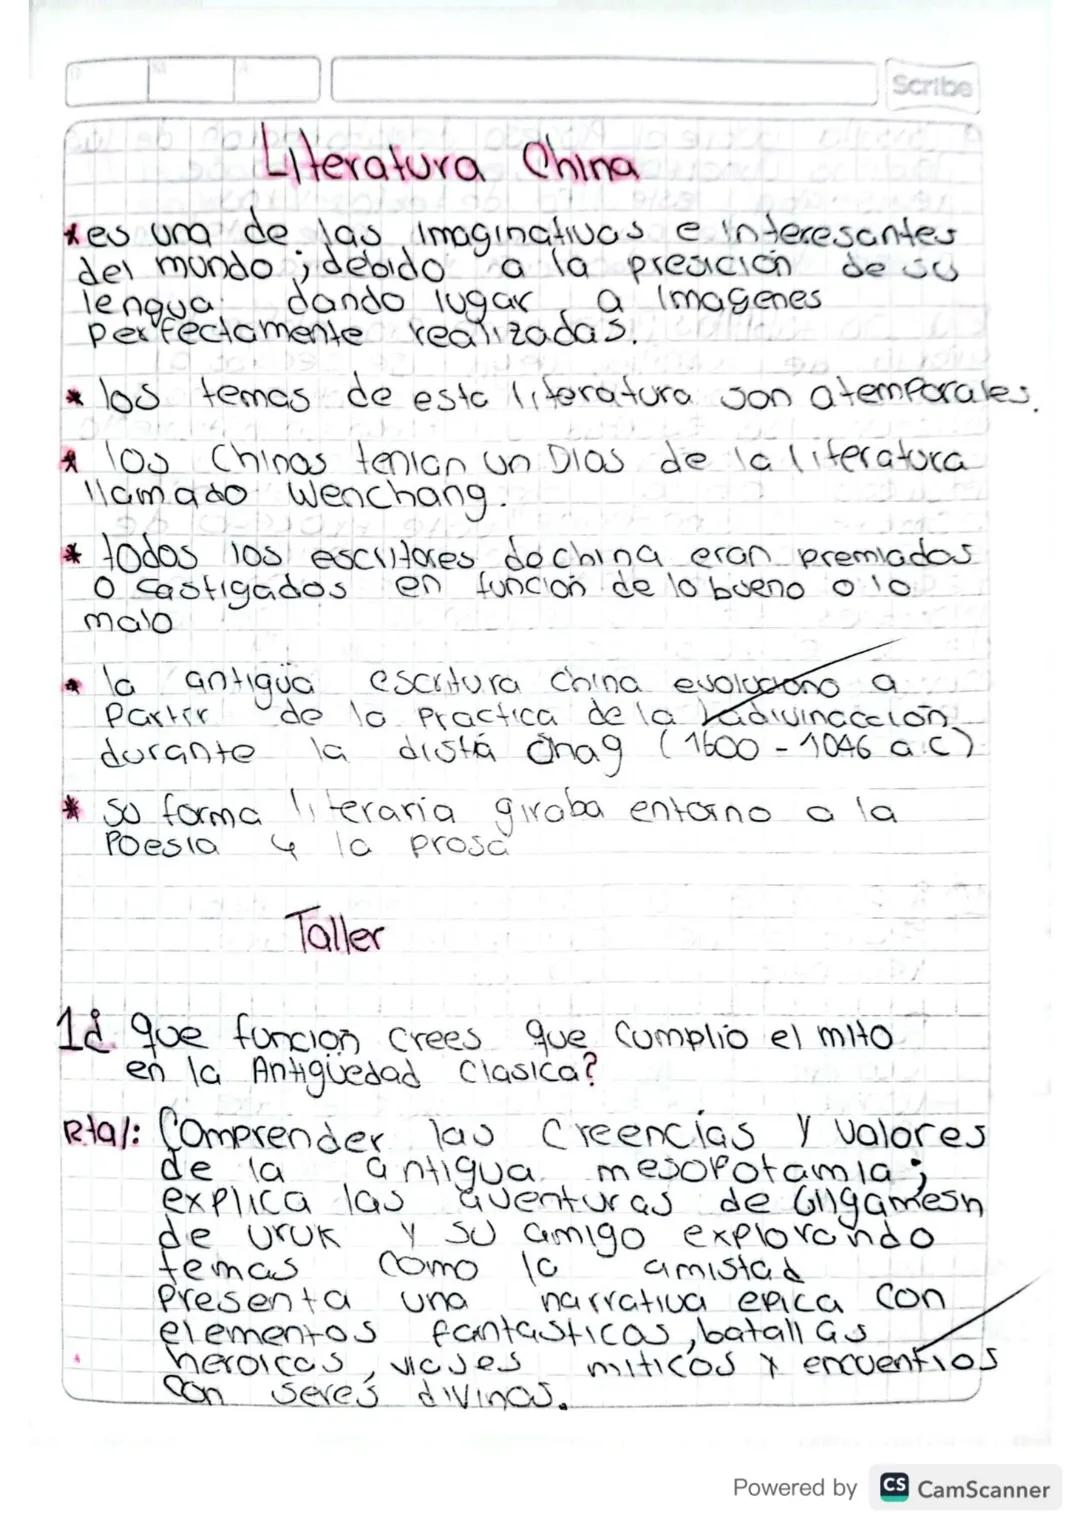 Scribe
Literatura China
* es una de las imaginativas e interesantes
del mundo ; debido a la presición de su
lengua dando lugar a imagenes
perfectamente realizadas.
* los temas de esta literatura son atemporales.
* los Chinos tenian un Dios de la literatura
llamado Wenchang.
* todos los escritores de china eran premiados
o castigados en función de lo bueno o lo
malo
* la antigüa escritura china evoluciono a
partir de la practica de la
durante la distia Chag (1600 - 1046 a.c)
* Su forma literaria giraba entorno a la
Poesia y la prosa
Taller
1¿ que funcion crees que Cumplio el mito
en la Antigüedad Clasica?
Rta/: Comprender las Creencias y Valores
de la antigua mesopotamia ;
explica las aventuras de Gilgamesh
de uruk y su amigo explorando
temas como la amistad
Presenta una narrativa epica con
elementos fantasticos, batallas
heroicas, viajes miticos y encuentros
con seres divinos.
Powered by CS CamScanner